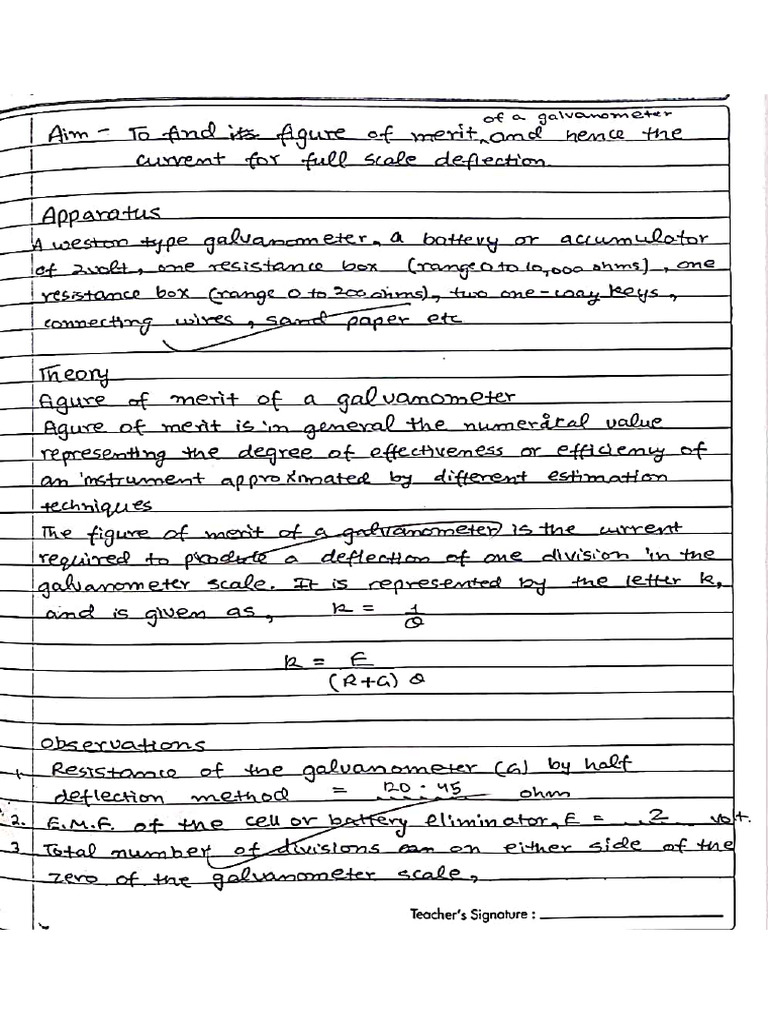 of a galvanometer
Aim - To find its figure of merit, and hence the
current for full scale deflection.
Apparatus
A weston type galvanometer, a battery or accumulator
of 2volt, one resistance box (range 0 to 10,000 ohms), one
resistance box (range 0 to 200 ohms), two one-way keys,
connecting wires, sand paper etc
Theory
figure of merit of a galvanometer
figure of merit is in general the numerical value
representing the degree of effectiveness or efficiency of
an instrument approximated by different estimation
techniques
The figure of merit of a galvanometer is the current
required to produce a deflection of one division in the
galvanometer scale. It is represented by the letter k,
and is given as, k = 1
θ
k = E
(R+G) θ
Observations
1. Resistance of the galvanometer (G) by half
deflection method = 120.45 ohm
2. E.M.F. of the cell or battery eliminator, E = ..2.. volt.
3 Total number of divisions on either side of the
zero of the galvanometer scale,
Teacher's Signature :